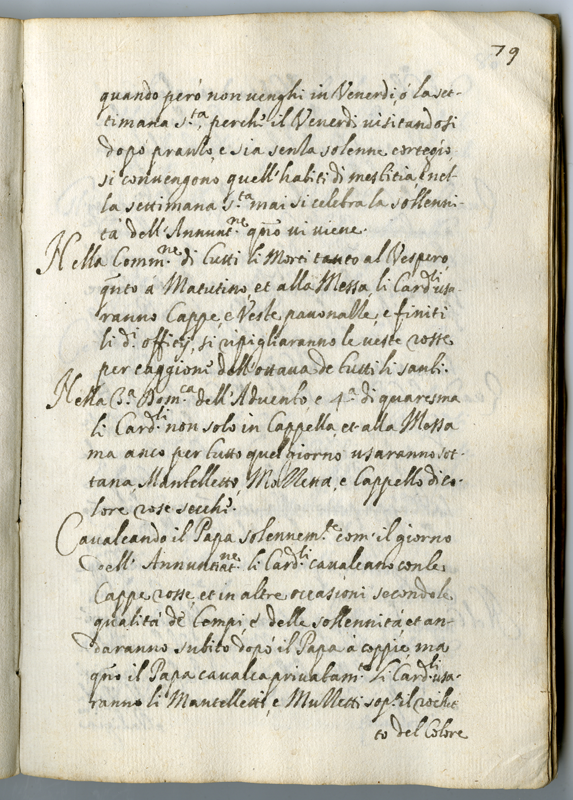 79
quando però non venghi in Venerdi, ó la set-
timana s.ta, perch.e il Venerdi visitandosi
dopo pranso, e sia senza solenne cortegio
si convengono quell'habiti di mestitia, e nel
la settimana s.ta mai si celebra la sollenni-
tà dell'Annunt.ne q.ndo vi viene.
Nella Comm.ne di tutti li Morti tanto al Vespero,
q.nto á Matutino, et alla Messa li Card.li usa-
ranno Cappe, e Veste pavonazze, e finiti
li d.i offitij, si ripigliaranno le veste rosse
per caggione dell'ottava de tutti li santi.
Nella 3.a Dom.ca dell'Advento e 4.a di quaresma
li Card.li non solo in Cappella et alla Messa
ma anco per tutto quel giorno usaranno sot-
tana Mantelletto, Mozzetta, e Cappello di co-
lore rose secche.
Cavalcando il Papa solennem.te com'il giorno
dell'Annuntiat.ne li Card.li cavalcano con le
Cappe rosse, et in altre occasioni secondo le
qualità de Tempi, e delle sollennità et an-
daranno subito dopó il Papa à coppie, ma
q.ndo il Papa cavalca privatam.te li Card.li usa-
ranno li Mantelletti, e Mozzetti sop.a il rochet
to del Colore